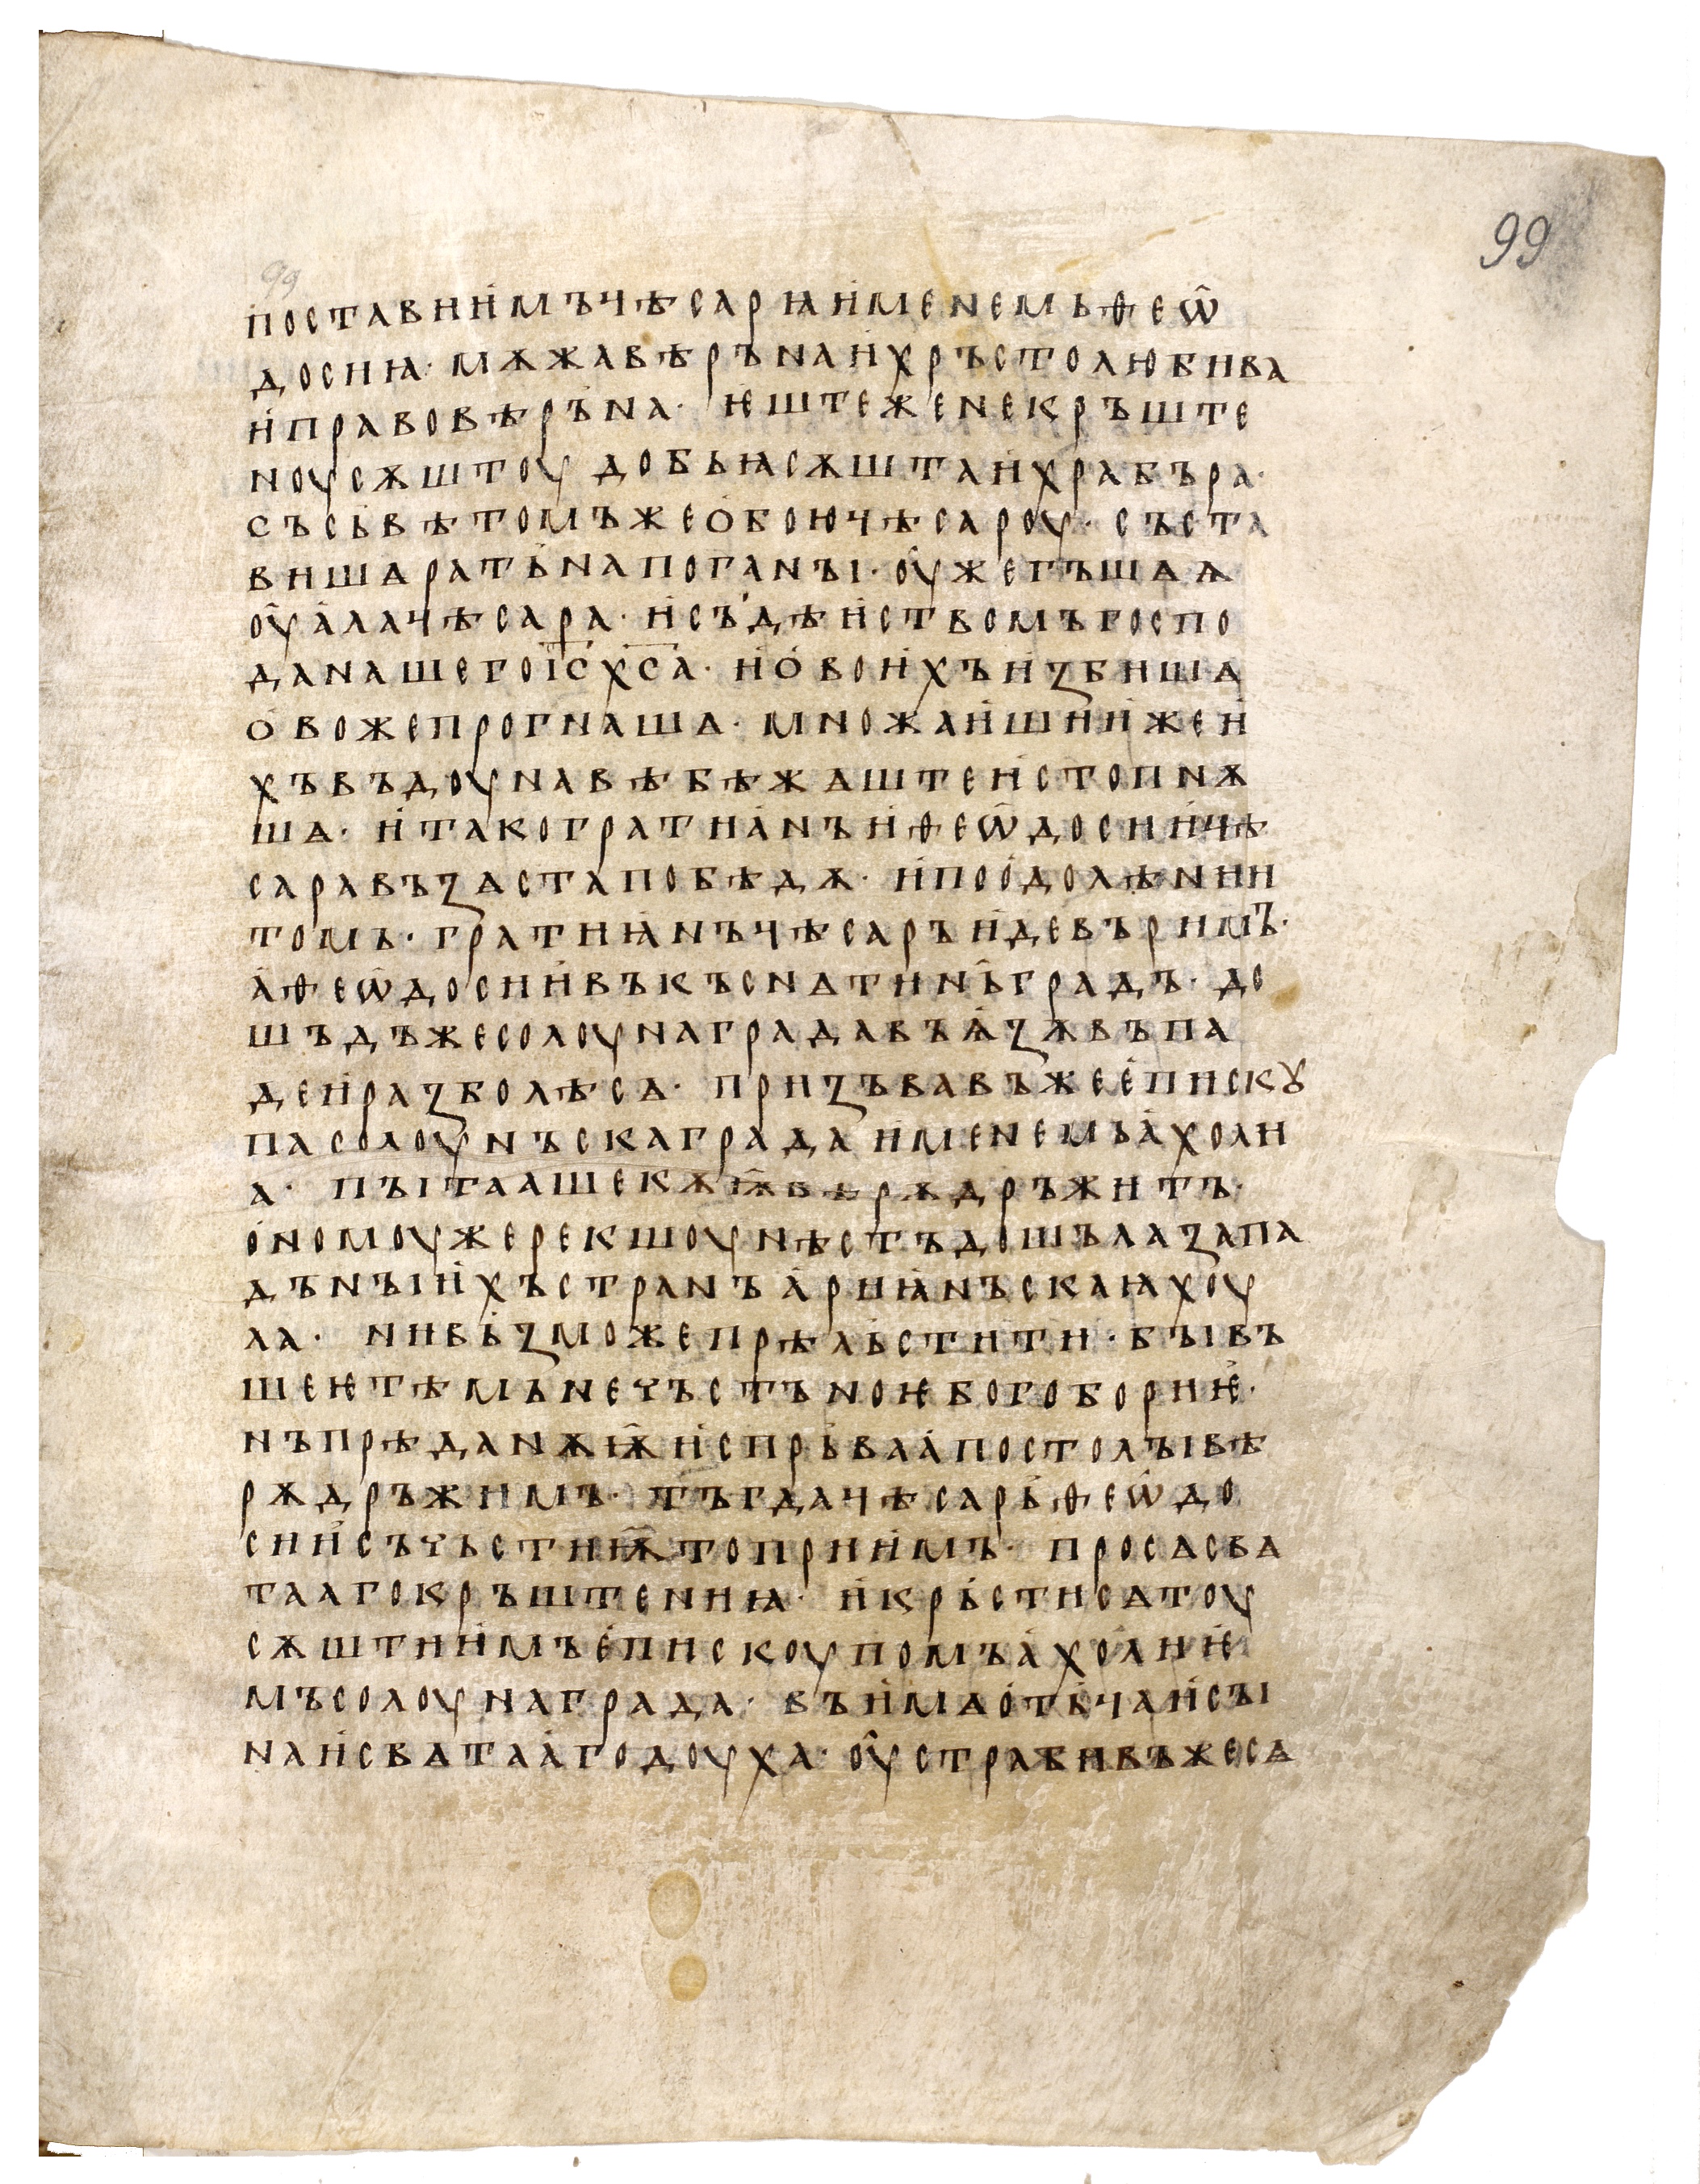 99
99
постави имъ чѣсарꙗ именемь ѳеѡ̑
досиꙗ· мѫжа вѣръна и хръстолюбива
и правовѣръна· ѥште же не кръште
ноу сѫштоу добьꙗ сѫшта и храбъра·
съсъвѣтомъ же обою чѣсароу· съста
вишѧ рать на поганꙑ· оуже гъшѧѧ
оуала чѣсара· и съдѣиствомъ госпо
да нашего іс҃ хс҃а· и ово ихъ избишѧ
ово же прогнашѧ· множаишии же и
хъ въ доунавѣ бѣжѧште истопнѫ
шѧ· и тако гратианъ и ѳеѡдосии чѣ
сара възѧста побѣдѫ· и по одолѣнии
томь· гратиꙗнъ чѣсаръ иде въ римъ·
а ѳеѡдосии въ къснѧтинь градъ· до
шъдъ же солоуна града въ ѩзѫ въпа
де и разболѣ сѧ· призъвавъ же епискꙋ
па солоунъска града именемъ ахоли
а· пꙑтаашe кѫѭ вѣрѫ дръжитъ·
ономоу же рекшоу нѣстъ дошъла запа
дънꙑихъ странъ ариꙗнъскаꙗ хоу
ла· ни възможе прѣльстити· бꙑвъ
шеѥ тѣмь нечъстъноѥ богобориѥ·
нъ прѣданѫѭ испръва апостолꙑ вѣ
рѫ дръжимъ· тъгда чѣсарь ѳеѡдо
сии съ чьстиѭ то приимъ· просѧ свѧ
тааго кръштениꙗ· и крьсти сѧ тоу
сѫштиимъ епискоупомъ ахолиѥ
мъ солоуна града· въ имѧ отьча и сꙑ
на и свѧтааго доуха· оустрабивъ же сѧ